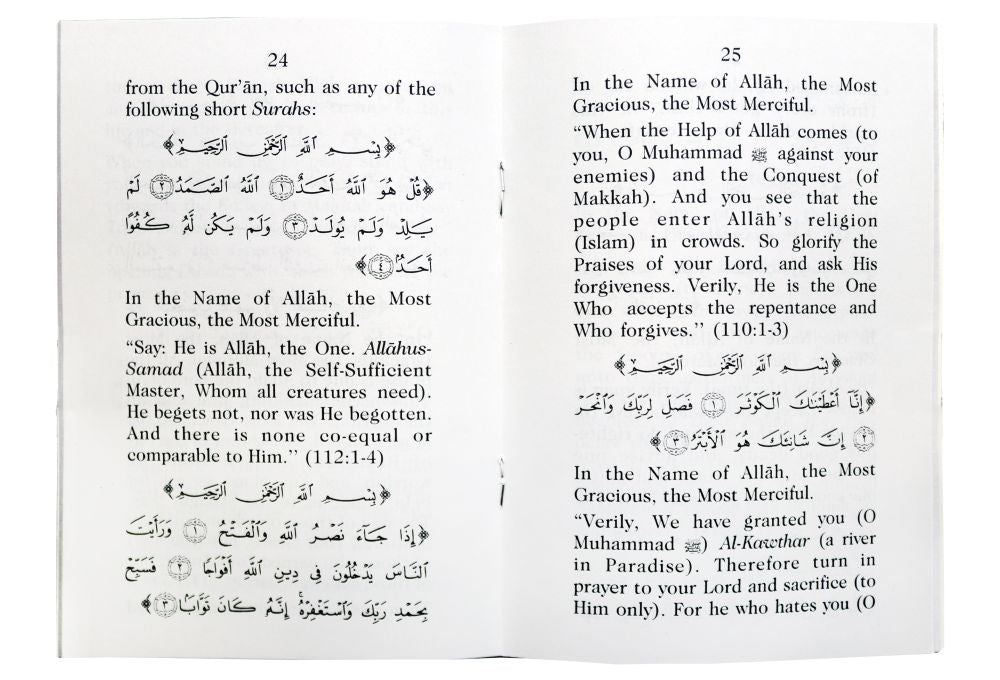 24
from the Qur'ān, such as any of the
following short Surahs:
﴿بِسْمِ ٱللَّهِ ٱلرَّحْمَٰنِ ٱلرَّحِيمِ﴾
﴿قُلْ هُوَ ٱللَّهُ أَحَدٌ ۝١ ٱللَّهُ ٱلصَّمَدُ ۝٢ لَمْ
يَلِدْ وَلَمْ يُولَدْ ۝٣ وَلَمْ يَكُن لَّهُ كُفُوًا
أَحَدٌ ۝٤﴾
In the Name of Allāh, the Most
Gracious, the Most Merciful.
“Say: He is Allāh, the One. Allāhus-
Samad (Allāh, the Self-Sufficient
Master, Whom all creatures need).
He begets not, nor was He begotten.
And there is none co-equal or
comparable to Him.” (112:1-4)
﴿بِسْمِ ٱللَّهِ ٱلرَّحْمَٰنِ ٱلرَّحِيمِ﴾
﴿إِذَا جَآءَ نَصْرُ ٱللَّهِ وَٱلْفَتْحُ ۝١ وَرَأَيْتَ
ٱلنَّاسَ يَدْخُلُونَ فِى دِينِ ٱللَّهِ أَفْوَاجًا ۝٢ فَسَبِّحْ
بِحَمْدِ رَبِّكَ وَٱسْتَغْفِرْهُ ۚ إِنَّهُ كَانَ تَوَّابًا ۝٣﴾
25
In the Name of Allāh, the Most
Gracious, the Most Merciful.
“When the Help of Allāh comes (to
you, O Muhammad ﷺ against your
enemies) and the Conquest (of
Makkah). And you see that the
people enter Allāh's religion
(Islam) in crowds. So glorify the
Praises of your Lord, and ask His
forgiveness. Verily, He is the One
Who accepts the repentance and
Who forgives.” (110:1-3)
﴿بِسْمِ ٱللَّهِ ٱلرَّحْمَٰنِ ٱلرَّحِيمِ﴾
﴿إِنَّآ أَعْطَيْنَٰكَ ٱلْكَوْثَرَ ۝١ فَصَلِّ لِرَبِّكَ وَٱنْحَرْ
۝٢ إِنَّ شَانِئَكَ هُوَ ٱلْأَبْتَرُ ۝٣﴾
In the Name of Allāh, the Most
Gracious, the Most Merciful.
“Verily, We have granted you (O
Muhammad ﷺ) Al-Kawthar (a river
in Paradise). Therefore turn in
prayer to your Lord and sacrifice (to
Him only). For he who hates you (O